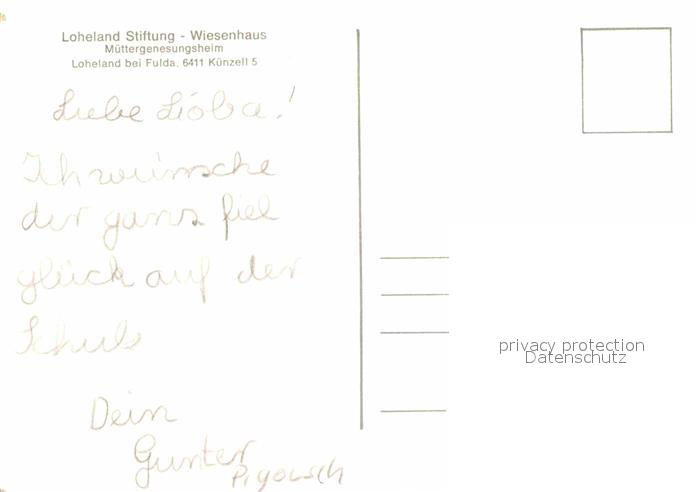 Loheland Stiftung - Wiesenhaus
Müttergenesungsheim
Loheland bei Fulda, 6411 Künzell 5
Liebe Lioba!
Ich wünsche
dir ganz fiel
glück auf der
Schule
Dein
Gunter
privacy protection
Datenschutz